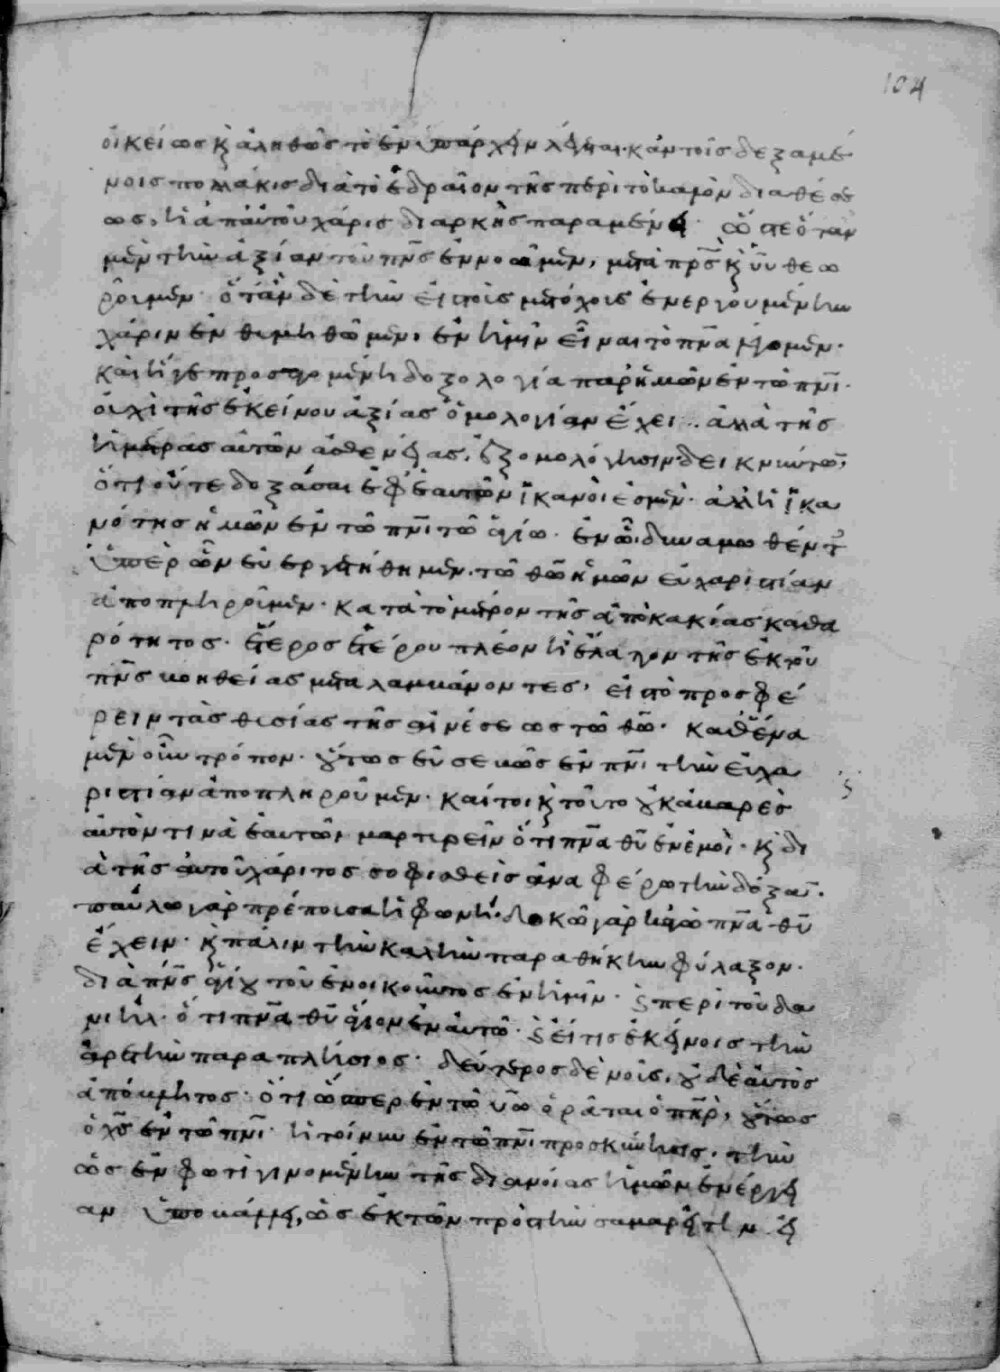 οἰκείως κ ἀληθῶς τὸ ἐν ὑπάρχειν λέγεται· κἀν τοῖς δεξαμέ
νοις πολλάκις διὰ τὸ ἑδραῖον τῆς περὶ τὸ καλὸν διαθέσε
ως, ἡ ἀπ' αὐτοῦ χάρις διαρκὴς παραμένει· ὥστε ὅταν
μὲν τὴν ἀξίαν τοῦ πνς ἐννοῶμεν, μετὰ πρς κ υυ θεω
ροῦμεν· ὅταν δὲ τὴν εἰς τοὺς μετόχους ἐνεργουμένην
χάριν ἐνθυμηθῶμεν, ἐν ἡμῖν εἶναι τὸ πνα λέγομεν·
καὶ ἥγε προσαγομένη δοξολογία παρ' ἡμῶν ἐν τῶ πνι·
οὐχὶ τῆς ἐκείνου ἀξίας ὁμολογίαν ἔχει· ἀλλὰ τῆς
ἡμετέρας αὐτῶν ἀσθενείας, ἐξομολόγησιν δεικνύντων,
ὅτι οὔτε δοξάσαι ἐφ' ἑαυτῶν ἱκανοί ἐσμεν· ἀλλ' ἡ ἱκα
νότης ἡμῶν ἐν τῶ πνι τῶ ἁγίω· ἐν ὧ δυναμωθέντες
ὑπὲρ ὧν εὐεργετήθημεν, τῶ θω ἡμῶν εὐχαριστίαν
ἀποπληροῦμεν· κατὰ τὸ μέτρον τῆς ἀπὸ κακίας καθα
ρότητος· ἕτερος ἑτέρου πλέον ἢ ἔλαττον τῆς ἐκ τοῦ
πνς βοηθείας μεταλαμβάνοντες, εἰς τὸ προσφέ
ρειν τὰς θυσίας τῆς αἰνέσεως τῶ θω· καθ' ἕνα
μὲν οὖν τρόπον· οὕτως εὐσεβῶς ἐν πνι τὴν εὐχα
ριστίαν ἀποπληροῦμεν· καίτοι κ τοῦτο οὐκ ἀβαρὲς
αὐτόν τινα ἑαυτῶ μαρτυρεῖν ὅτι πνα θυ ἐν ἐμοί· κ δι
ὰ τῆς αὐτοῦ χάριτος σοφισθεὶς ἀναφέρω τὴν δόξαν·
παύλω γὰρ πρέπουσα ἡ φωνή· δοκῶ γὰρ κἀγὼ πνα θυ
ἔχειν· κ πάλιν τὴν καλὴν παραθήκην φύλαξον·
διὰ πνς ἁγίου τοῦ ἐνοικοῦντος ἐν ἡμῖν· κ περὶ τοῦ δα
νιήλ· ὅτι πνα θυ ἅγιον ἐν αὐτῶ· κ εἴ τις ἐκείνοις τὴν
ἀρετὴν παραπλήσιος· δεύτερος δὲ νοῦς, οὐδὲ αὐτὸς
ἀπόβλητος· ὅτι ὥσπερ ἐν τῶ υω ὁρᾶται ὁ πηρ, οὕτως
ὁ υς ἐν τῶ πνι· ἡ τοίνυν ἐν τῶ πνι προσκύνησις, τὴν
ὡς ἐν φωτὶ γινομένην τῆς διανοίας ἡμῶν ἐνέργει
αν ὑποβάλλει, ὡς ἐκ τῶν πρὸς τὴν σαμαρεῖτιν εἰ